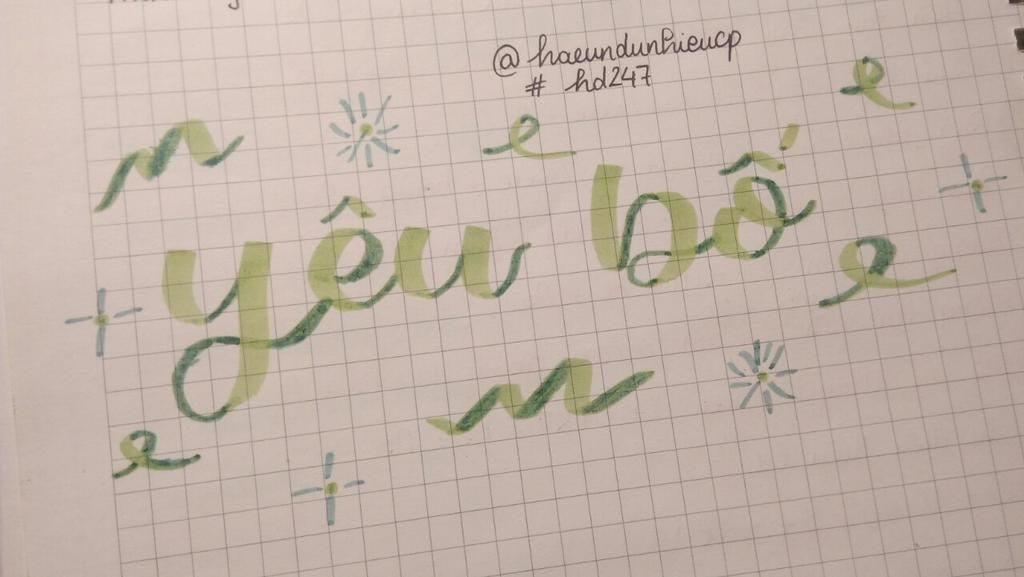 @haeundunhieucp
# hd247
yêu bố